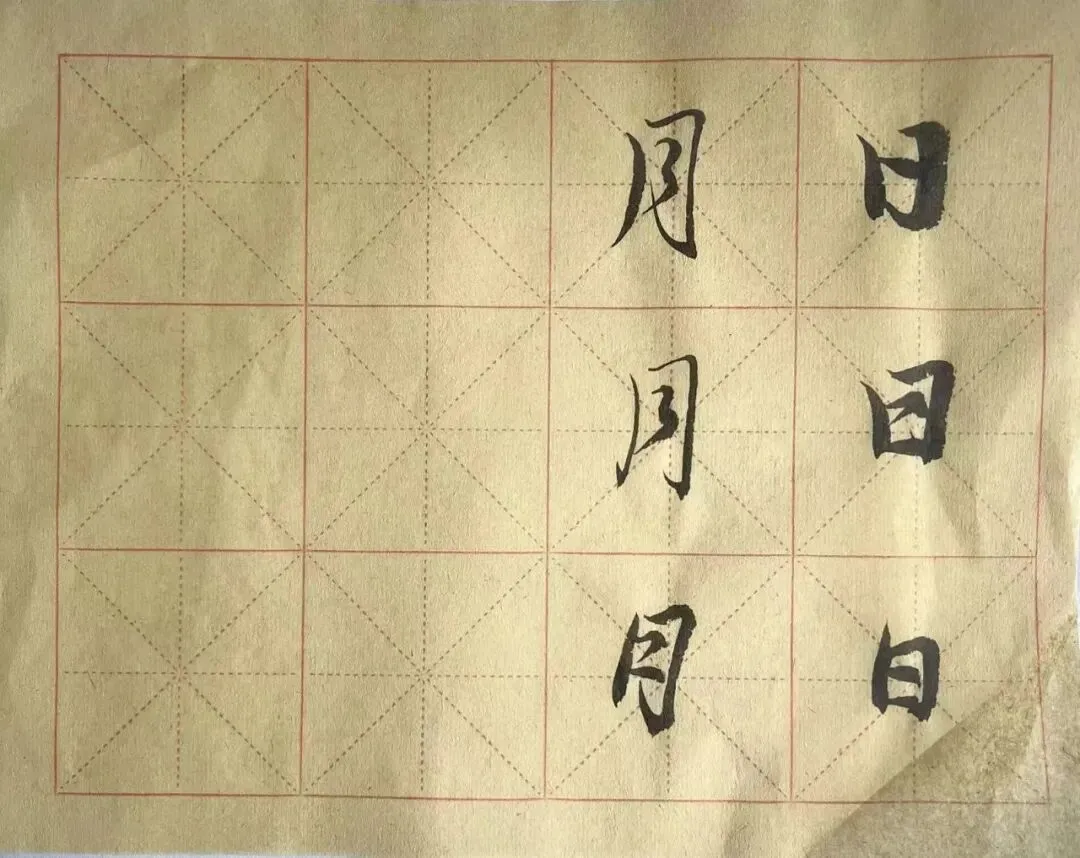 日日日
月月月